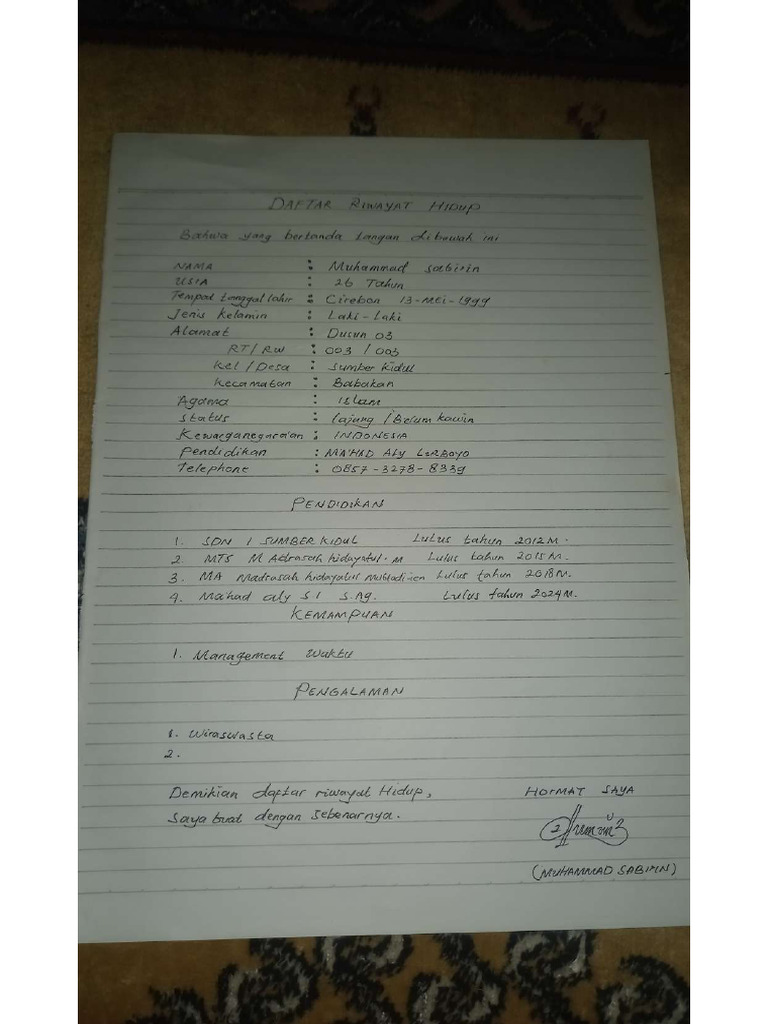 DAFTAR RIWAYAT HIDUP
Bahwa yang bertanda tangan dibawah ini
NAMA : Muhammad Sabirin
USIA : 26 Tahun
Tempat tanggal lahir : Cirebon 13-MEI-1999
Jenis Kelamin : Laki-Laki
Alamat : Dusun 03
RT/RW : 003 / 003
Kel / Desa : Sumber Kidul
Kecamatan : Babakan
Agama : Islam
Status : Lajang / Belum kawin
Kewarganegaraan : INDONESIA
Pendidikan : MA'HAD ALY LIRBOYO
Telephone : 0857-3278-8339
PENDIDIKAN
1. SDN 1 SUMBER KIDUL Lulus tahun 2012 M.
2. MTS M Adrasah hidayatul. M Lulus tahun 2015 M.
3. MA Madrasah hidayatul Mubtadi-ien Lulus tahun 2018 M.
4. Mahad aly S1 S.Ag. Lulus tahun 2024 M.
KEMAMPUAN
1. Management Waktu
PENGALAMAN
1. Wiraswasta
2.
Demikian daftar riwayat Hidup,
Saya buat dengan sebenarnya.
HORMAT SAYA
(MUHAMMAD SABIRIN)